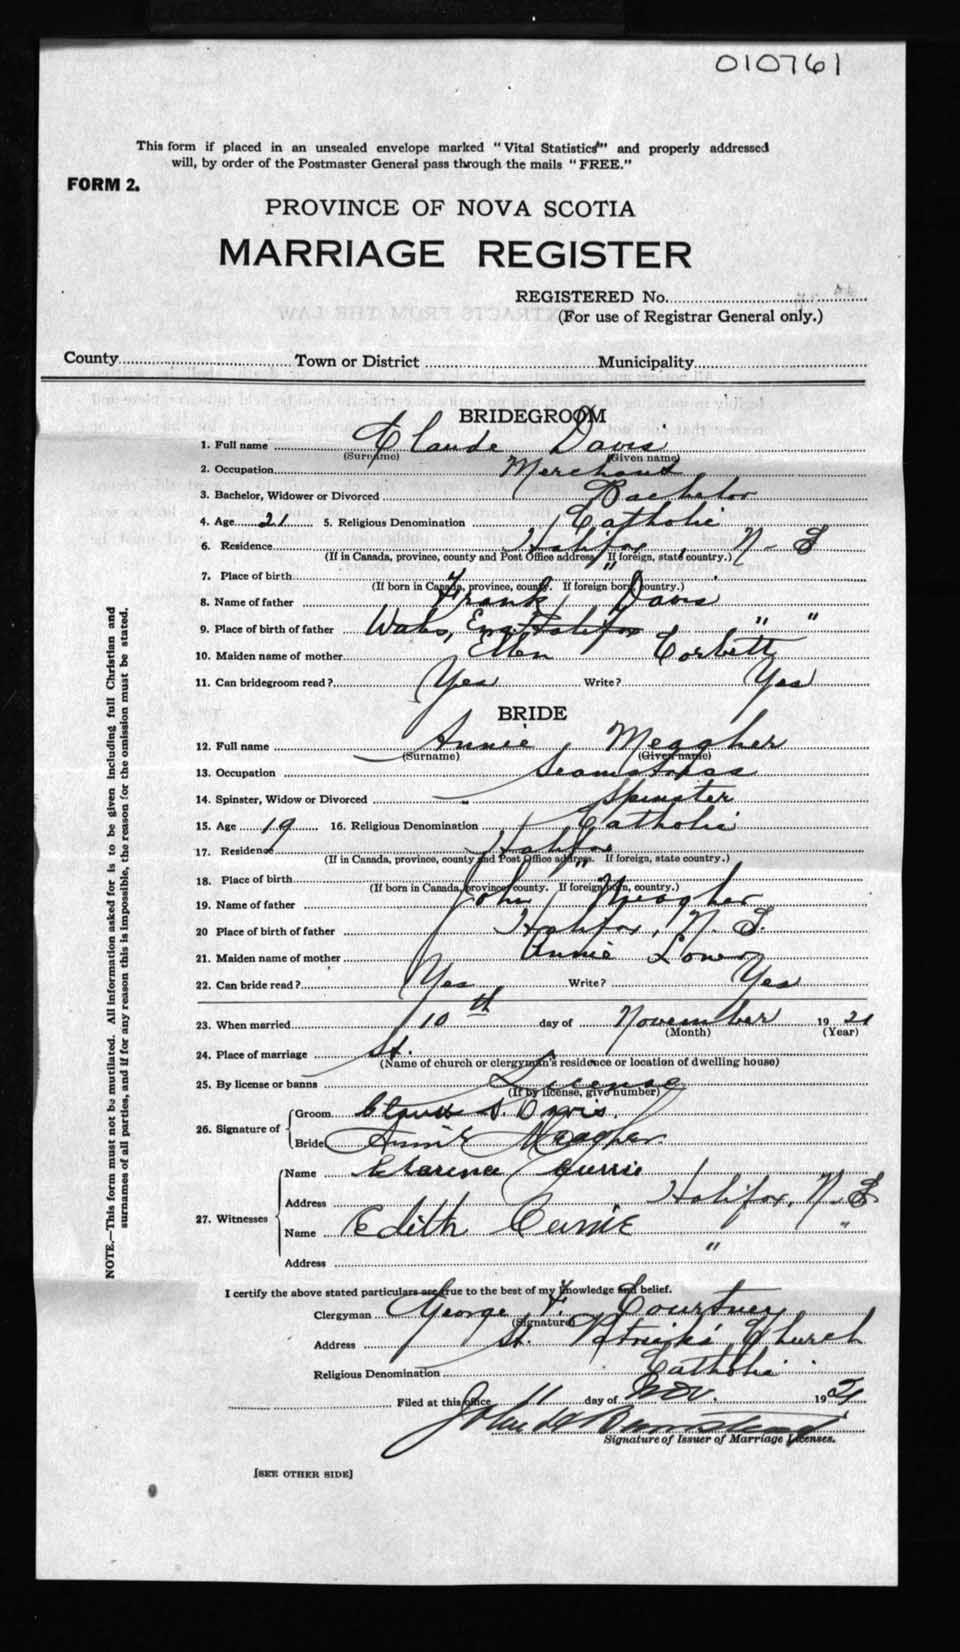 010761
This form if placed in an unsealed envelope marked "Vital Statistics" and properly addressed
will, by order of the Postmaster General pass through the mails "FREE."
FORM 2.
PROVINCE OF NOVA SCOTIA
MARRIAGE REGISTER
REGISTERED No.
(For use of Registrar General only.)
County Town or District Municipality
BRIDEGROOM
1. Full name Claude Davis
(Surname) (Given name)
2. Occupation Merchant
3. Bachelor, Widower or Divorced Bachelor
4. Age 21 5. Religious Denomination Catholic
6. Residence Halifax, N-S
(If in Canada, province, county and Post Office address. If foreign, state country.)
7. Place of birth "
(If born in Canada, province, county. If foreign born, country.)
8. Name of father Frank Davis
9. Place of birth of father Wales, Eng. Halifax " "
10. Maiden name of mother Ellen Corbett
11. Can bridegroom read? Yes Write? Yes
BRIDE
12. Full name Annie Meagher
(Surname) (Given name)
13. Occupation Seamstress
14. Spinster, Widow or Divorced Spinster
15. Age 19 16. Religious Denomination Catholic
17. Residence Halifax
(If in Canada, province, county and Post Office address. If foreign, state country.)
18. Place of birth "
(If born in Canada, province, county. If foreign born, country.)
19. Name of father John Meagher
20 Place of birth of father Halifax, N. S.
21. Maiden name of mother Annie Lowry
22. Can bride read? Yes Write? Yes
23. When married 10th day of November 1921
(Month) (Year)
24. Place of marriage St.
(Name of church or clergyman's residence or location of dwelling house)
25. By license or banns License
(If by license, give number)
26. Signature of Groom Claude S. Davis.
Bride Annie Meagher.
27. Witnesses Name Clarence Currie
Address Halifax, N.S
Name Edith Currie "
Address "
I certify the above stated particulars are true to the best of my knowledge and belief.
Clergyman George F. Courtney
(Signature)
Address St. Patrick's Church
Religious Denomination Catholic
Filed at this office 11 day of Nov. 1921
John
Signature of Issuer of Marriage Licenses.
[SEE OTHER SIDE]
NOTE.—This form must not be mutilated. All information asked for is to be given including full Christian and
surnames of all parties, and if for any reason this is impossible, the reason for the omission must be stated.